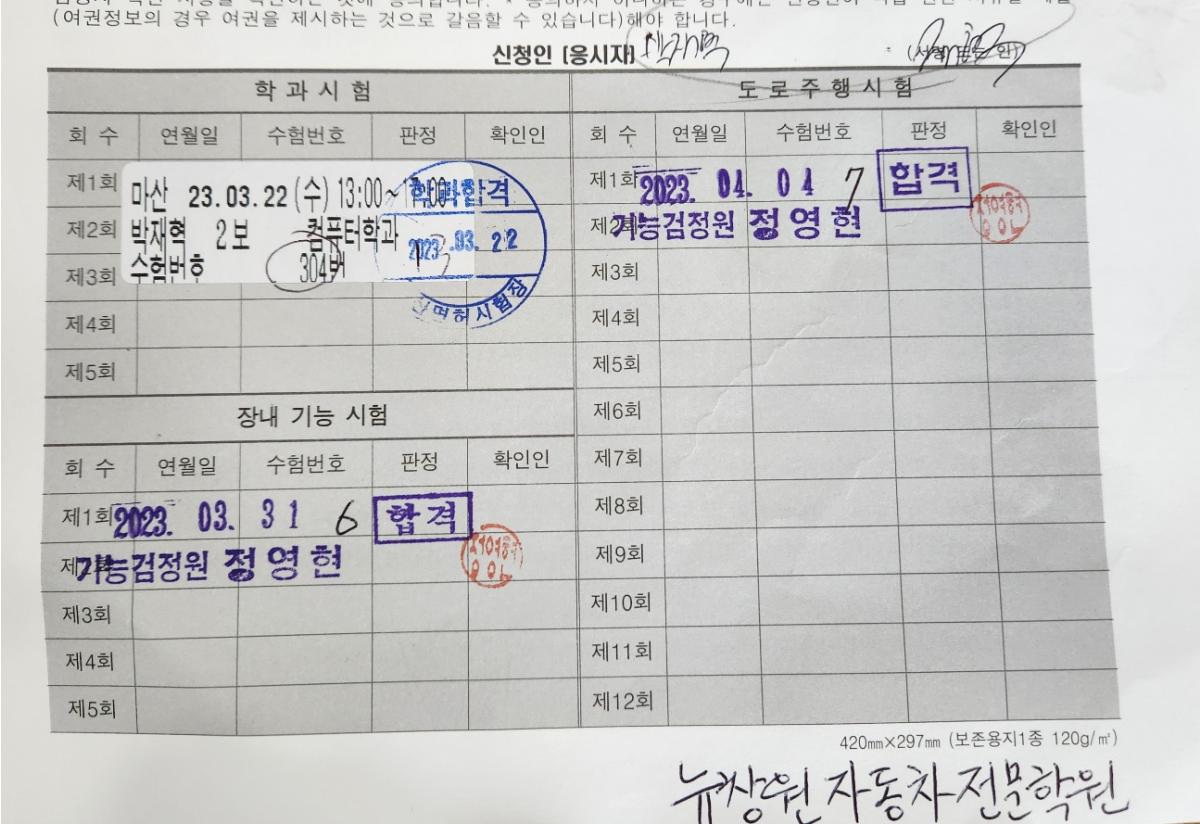 (여권정보의 경우 여권을 제시하는 것으로 갈음할 수 있습니다)해야 합니다.
신청인 [응시자] 박재혁
학과시험
회 수 연월일 수험번호 판정 확인인
제1회 마산 23.03.22 (수) 13:00~
제2회 박재혁 2보 컴퓨터학과
제3회 수험번호 304번
학과합격
2023.03.22
면허시험장
제4회
제5회
장내 기능 시험
회 수 연월일 수험번호 판정 확인인
제1회 2023. 03. 31 6 합격
기능검정원 정영현
제3회
제4회
제5회
도로주행시험
회 수 연월일 수험번호 판정 확인인
제1회 2023. 04. 04 7 합격
제2회 기능검정원 정영현
제3회
제4회
제5회
제6회
제7회
제8회
제9회
제10회
제11회
제12회
420㎜×297㎜ (보존용지1종 120g/㎡)
뉴창원자동차전문학원